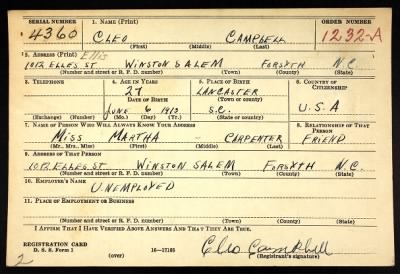 SERIAL NUMBER 1. NAME (Print) ORDER NUMBER
4360 CLEO CAMPBELL 1232-A
(First) (Middle) (Last)
2. ADDRESS (Print) Ellis
1012 ELLES ST WINSTON SALEM FORSYTH N.C.
(Number and street or R. F. D. number) (Town) (County) (State)
3. TELEPHONE 4. AGE IN YEARS 5. PLACE OF BIRTH 6. COUNTRY OF CITIZENSHIP
27 LANCASTER
DATE OF BIRTH (Town or county)
JUNE 6 1913 S.C. U.S.A
(Exchange) (Number) (Mo.) (Day) (Yr.) (State or country)
7. NAME OF PERSON WHO WILL ALWAYS KNOW YOUR ADDRESS 8. RELATIONSHIP OF THAT PERSON
MISS MARTHA CARPENTER FRIEND
(Mr., Mrs., Miss) (First) (Middle) (Last)
9. ADDRESS OF THAT PERSON
1012 ELLES ST WINSTON SALEM FORSYTH N.C.
(Number and street or R. F. D. number) (Town) (County) (State)
10. EMPLOYER'S NAME
UNEMPLOYED
11. PLACE OF EMPLOYMENT OR BUSINESS
(Number and street or R. F. D. number) (Town) (County) (State)
I AFFIRM THAT I HAVE VERIFIED ABOVE ANSWERS AND THAT THEY ARE TRUE.
REGISTRATION CARD
D. S. S. Form 1 16—17105 Cleo Campbell
(over) (Registrant's signature)
2